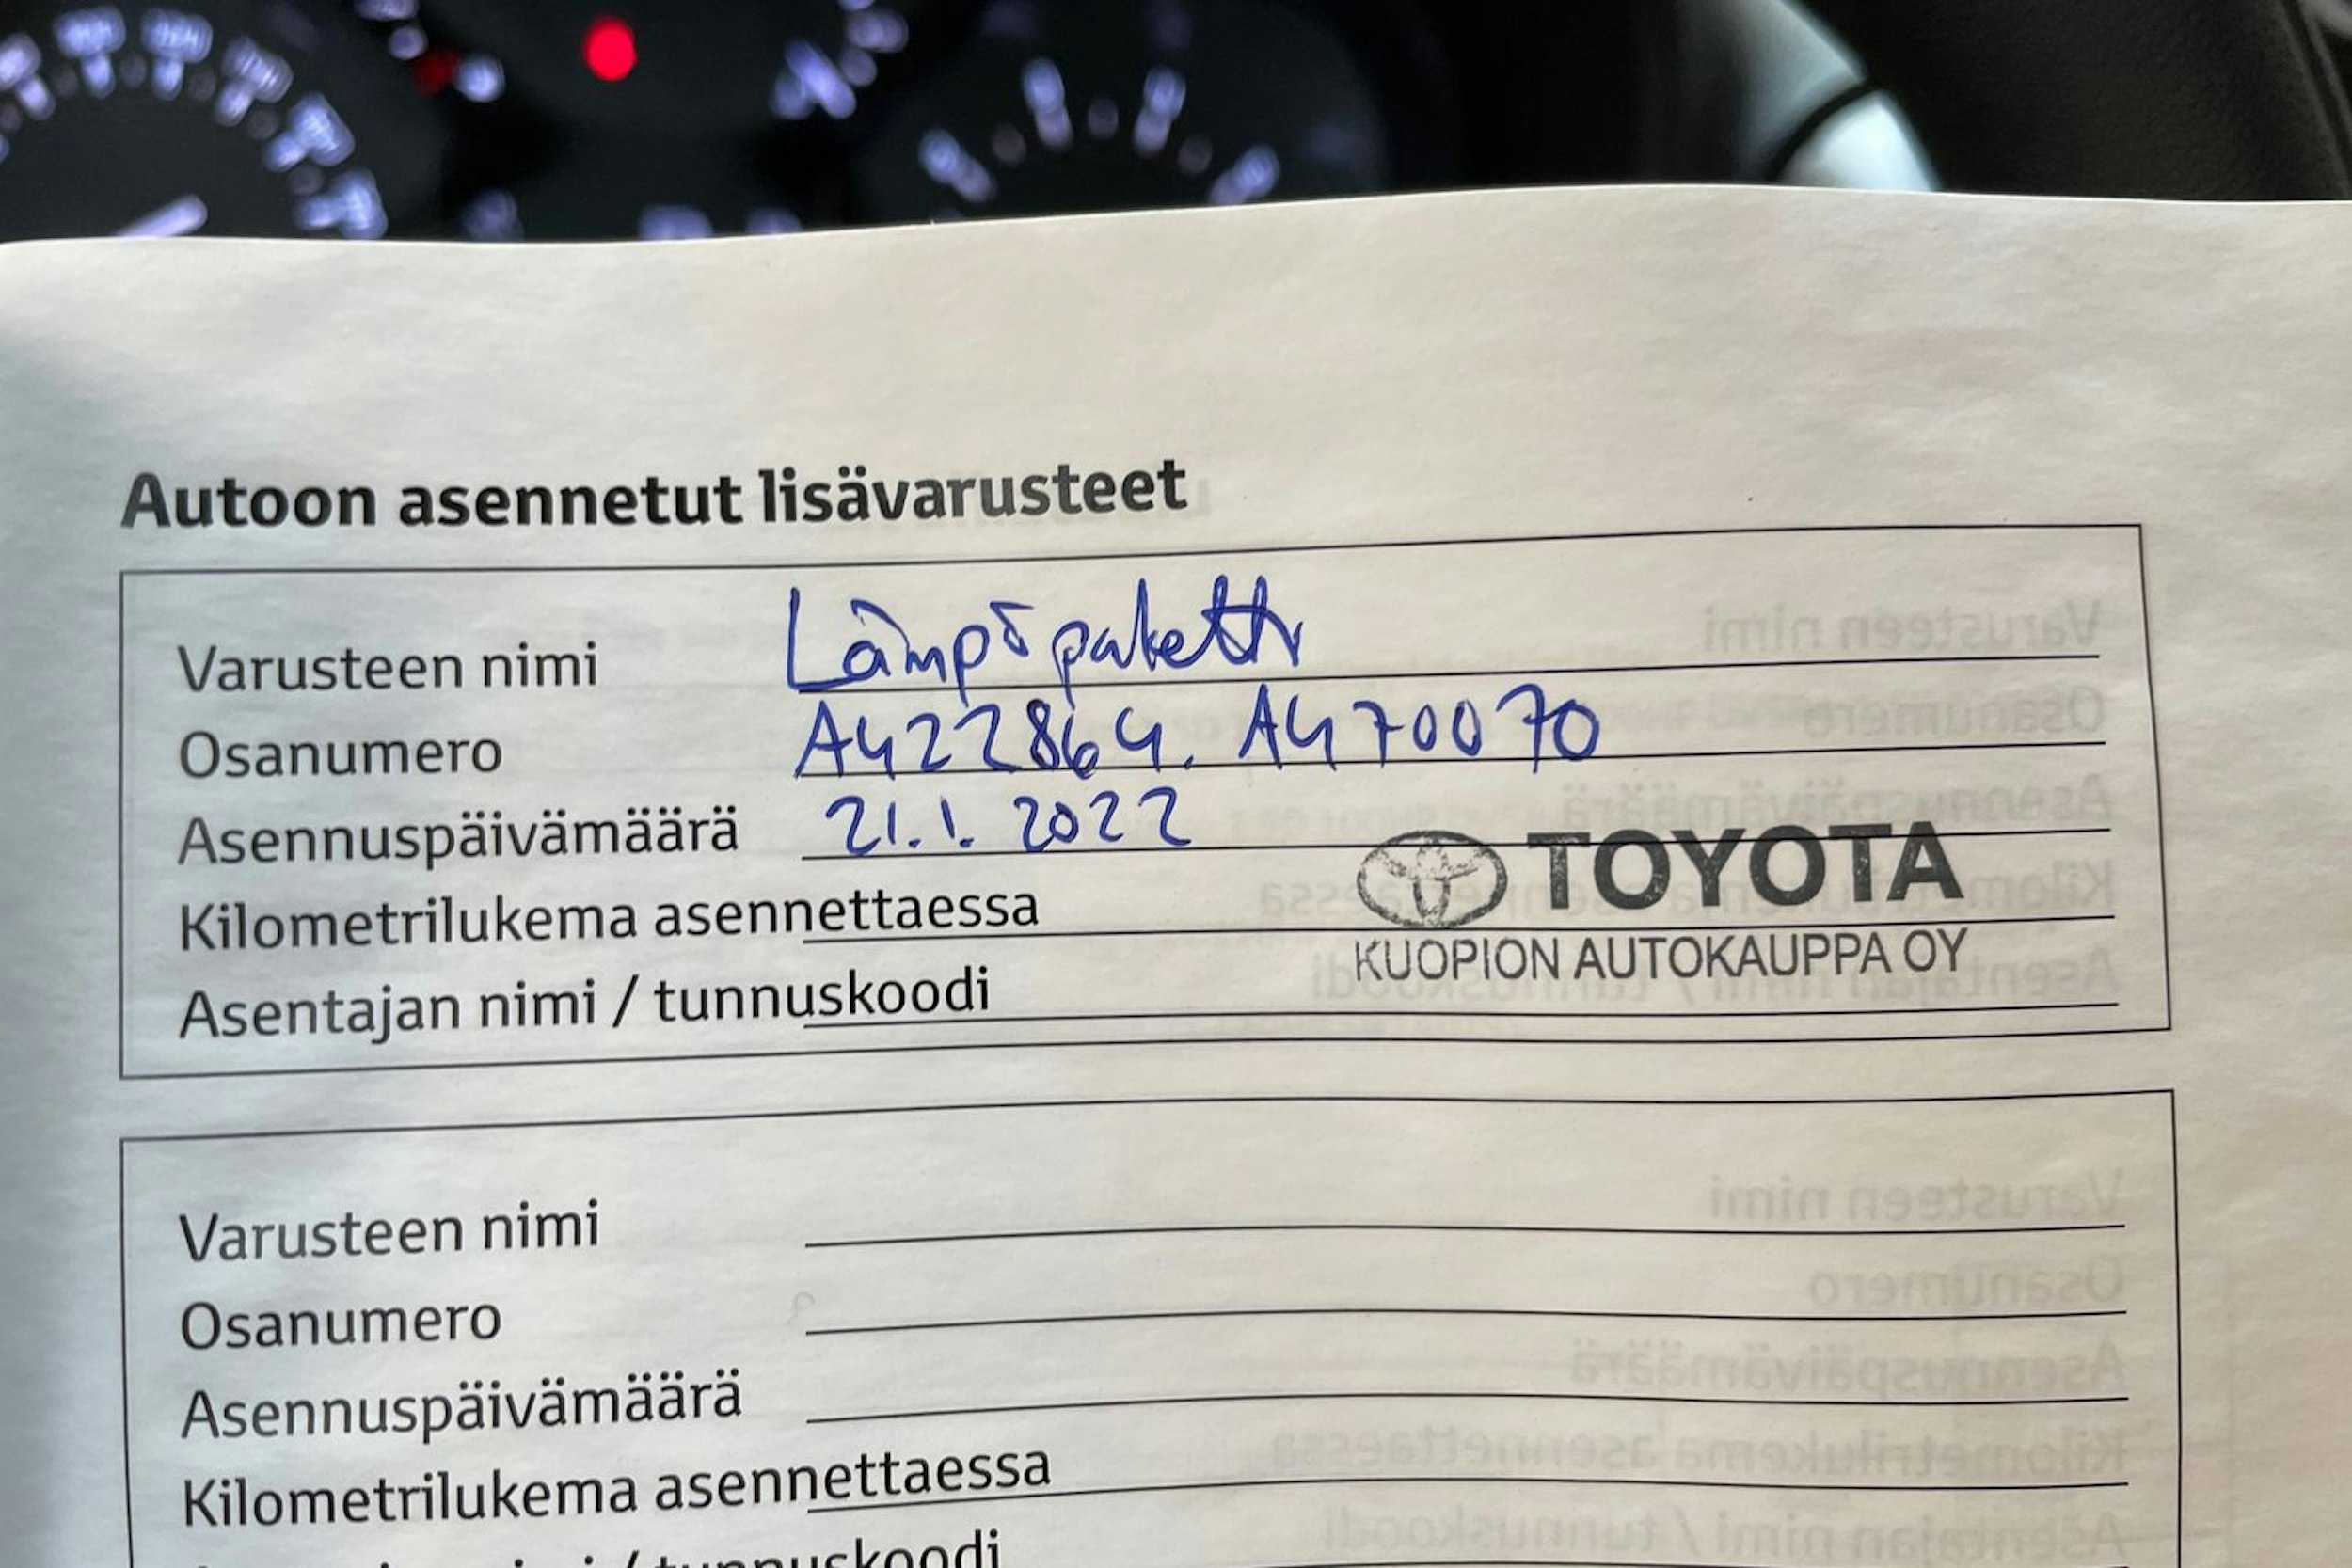 Autoon asennetut lisävarusteet
Varusteen nimi Lämpöpaketti
Osanumero A422864. A470070
Asennuspäivämäärä 21.1.2022
TOYOTA
Kilometrilukema asennettaessa
KUOPION AUTOKAUPPA OY
Asentajan nimi / tunnuskoodi
Varusteen nimi
Osanumero
Asennuspäivämäärä
Kilometrilukema asennettaessa
/ tunnuskoodi